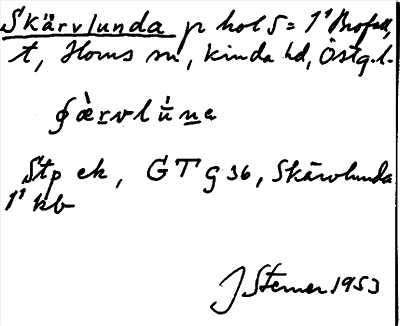 Skärvlunda p hol S = 1' Brofall,
t, Horns sn, Kinda hd, Östg.l.
ʃæ̀rvlúna
Stp ek, GT g 36, Skärvlunda
1' kb
J Sterner 1953